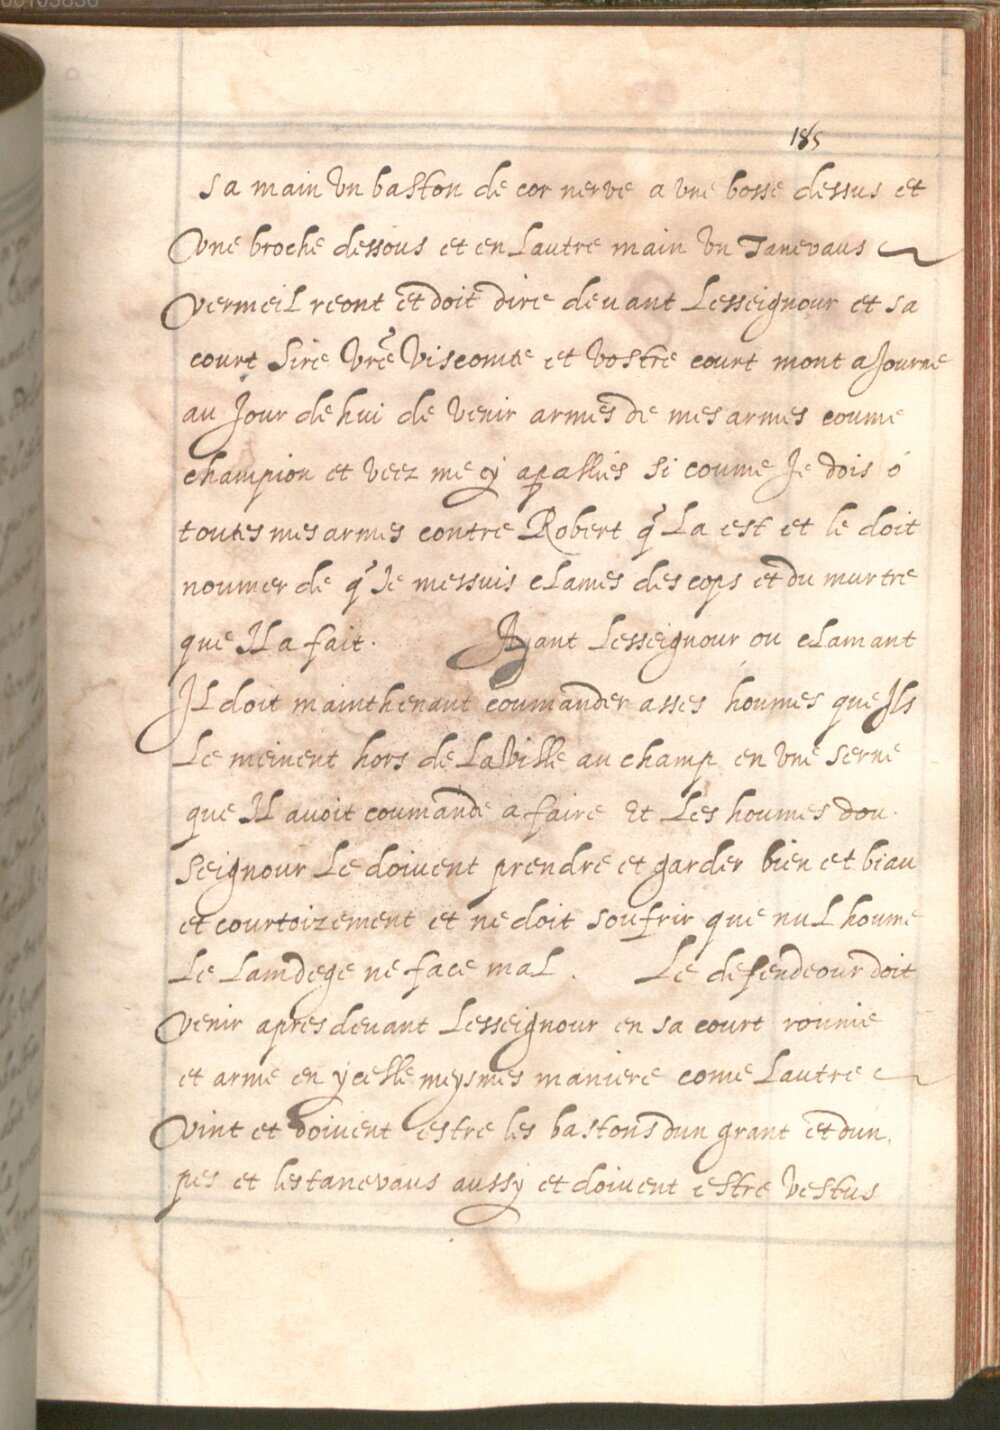 185
sa main vn baston de cor nerve a vne bosse dessus et
vne broche dessous et en Lautre main vn Tanevaus
vermeil reont et doit dire deuant Lesseignour et sa
court Sire vre Viscomte et vostre court mont aJourne
au Jour de hui de venir armes de mes armes coume
champion et veez me cy apallies si coume Je dois o
toutes mes armes contre Robert q La est et le doit
noumer de q Je messuis clames des cops et du murtre
que Il a fait. Ayant Lesseignour ou clamant
Il doit mainthenant coumander asses houmes que Ils
Le meinent hors de La Ville au champ en vne serne
que Il auoit coumande a faire Et Les houmes dou
Seignour Le doiuent prendre et garder bien et biau
et courtoizement et ne doit soufrir que nul houme
Le Lamdege ne face mal. Le defendeour doit
venir apres deuant Lesseignour en sa court rounie
et arme en ycelle meysmes maniere come Lautre
vint et doiuent estre les bastons dun grant et dun
pes et les tanevaus aussy et doiuent estre vestus